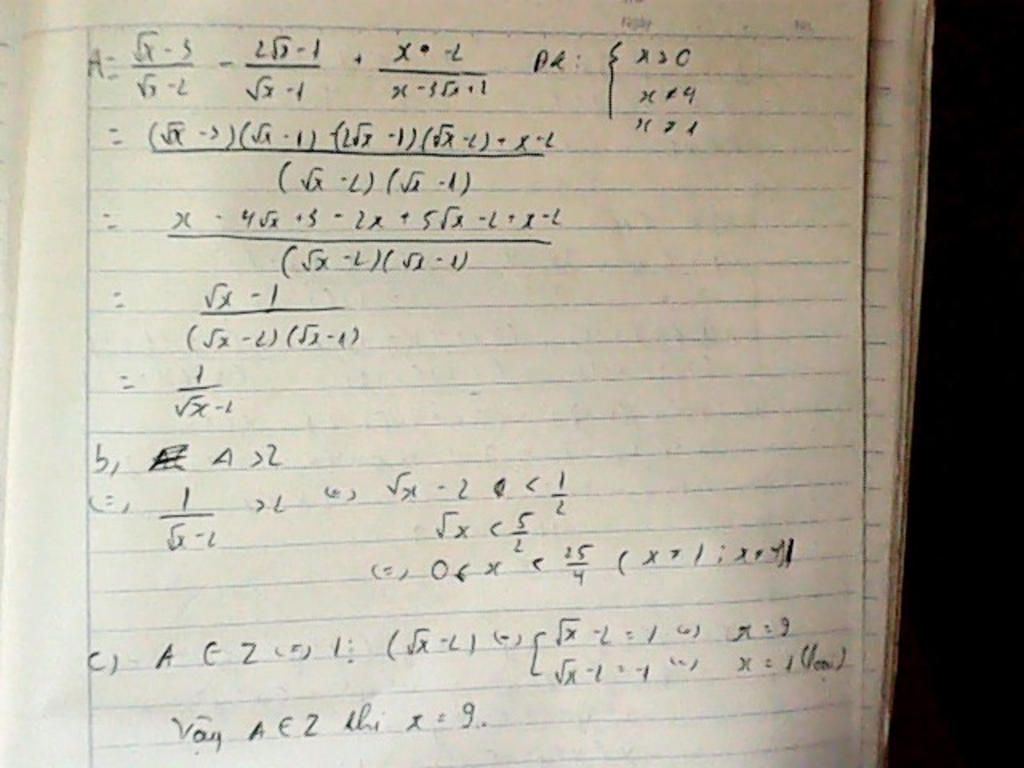 A = (√x - 3)/(√x - 2) - (2√x - 1)/(√x - 1) + (x - 2)/(x - 3√x + 2) ĐK: { x ≥ 0
x ≠ 4
x ≠ 1
= ((√x - 3)(√x - 1) - (2√x - 1)(√x - 2) + x - 2)/((√x - 2)(√x - 1))
= (x - 4√x + 3 - 2x + 5√x - 2 + x - 2)/((√x - 2)(√x - 1))
= (√x - 1)/((√x - 2)(√x - 1))
= 1/(√x - 2)
b, A > 2
(=) 1/(√x - 2) > 2 (=) √x - 2 < 1/2
√x < 5/2
(=) 0 ≤ x < 25/4 (x ≠ 1; x ≠ 4)
c) A ∈ Z (=) 1 ⋮ (√x - 2) (=) [ √x - 2 = 1 (=) x = 9
√x - 2 = -1 (=) x = 1 (loại)
Vậy A ∈ Z khi x = 9.